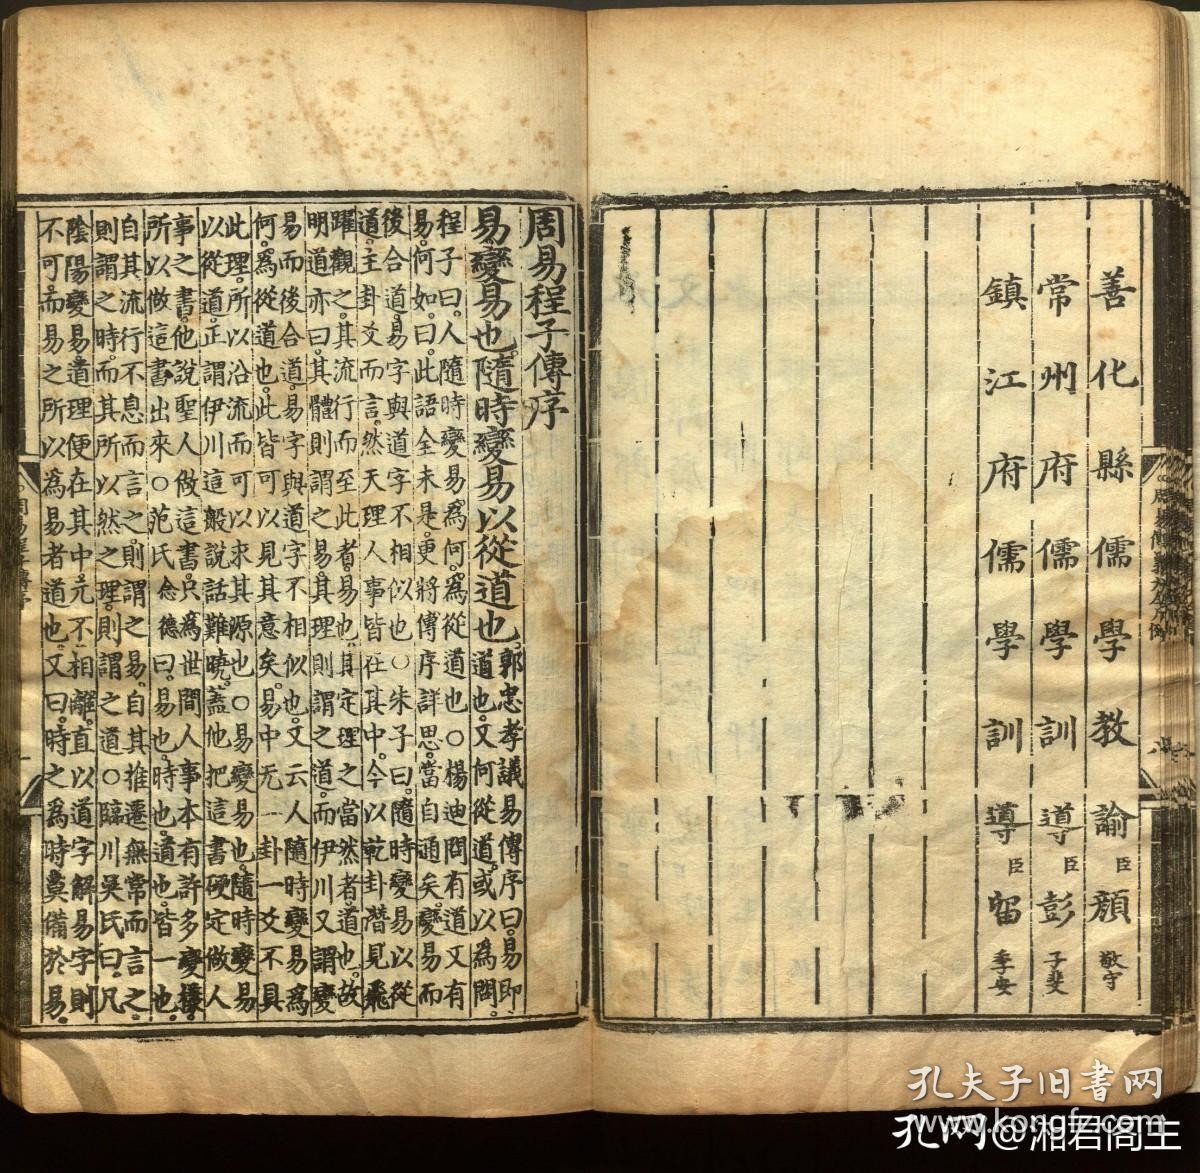 善化縣儒學教諭臣顏敬守
常州府儒學訓導臣彭子斐
鎮江府儒學訓導臣留季安
周易程子傳序
易變易也。隨時變易以從道也。郭忠孝議易傳序曰。易即
道也。又何從道。或以為問。
程子曰。人隨時變易為何。為從道也〇楊迪問有道又有
易。何如。曰。此語全未是。更將傳序詳思。當自通矣。變易而
後合道。易字與道字不相似也〇朱子曰。隨時變易以從
道。主卦爻而言。然天理人事皆在其中。今以乾卦潛見飛
躍觀之。其流行而至此者。易也。其定理之當然者。道也。故
明道亦曰。其體則謂之易。其理則謂之道。而伊川又謂變
易而後合道。易字與道字不相似也。又云人隨時變易為
何。為從道也。此皆可以見其意矣。易中无一卦一爻不具
此理。所以沿流而可以求其源也〇易變易也。隨時變易
以從道。正謂伊川這般說話難曉。蓋他把這書硬定做人
事之書。他說聖人做這書。只為世間人事本有許多變樣。
所以做這書出來〇范氏念德曰。易也。時也。道也。皆一也。
自其流行不息而言之。則謂之易。自其推遷無常而言之。
則謂之時。而其所以然之理。則謂之道〇臨川吳氏曰。凡
陰陽變易。道理便在其中。元不相離。直以道字解易字則
不可。而易之所以為易者道也。又曰。時之為時莫備於易。
周易程子傳序
孔夫子旧书网
www.kongfz.com
孔网@湘君阁主